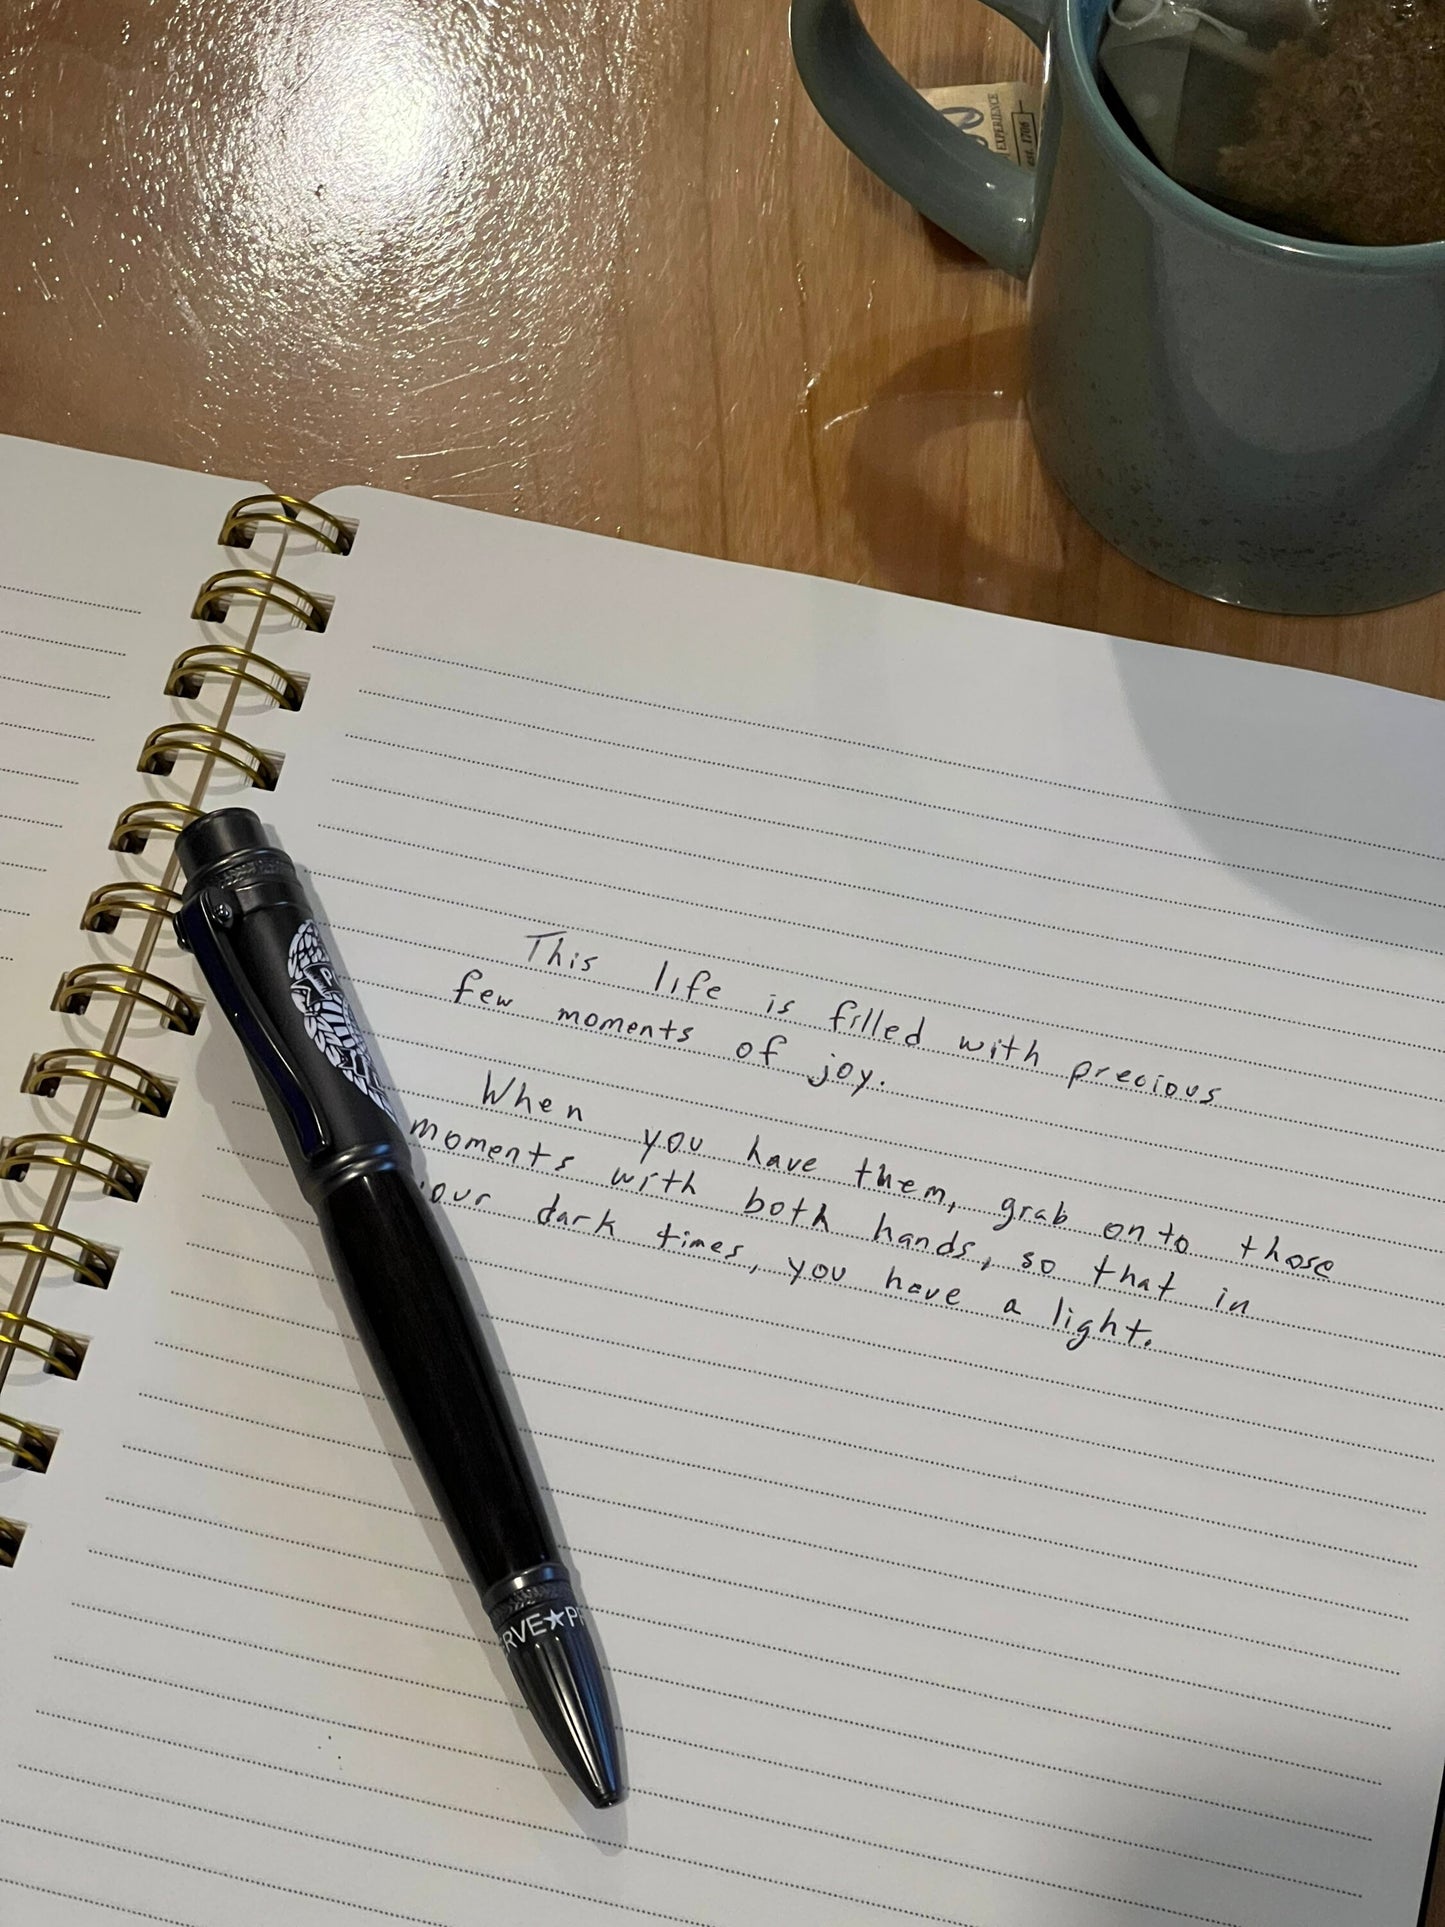 EXPERIENCE
est. 1706
This life is filled with precious
few moments of joy.
When you have them, grab onto those
moments with both hands, so that in
your dark times, you have a light.
P
RVE★P